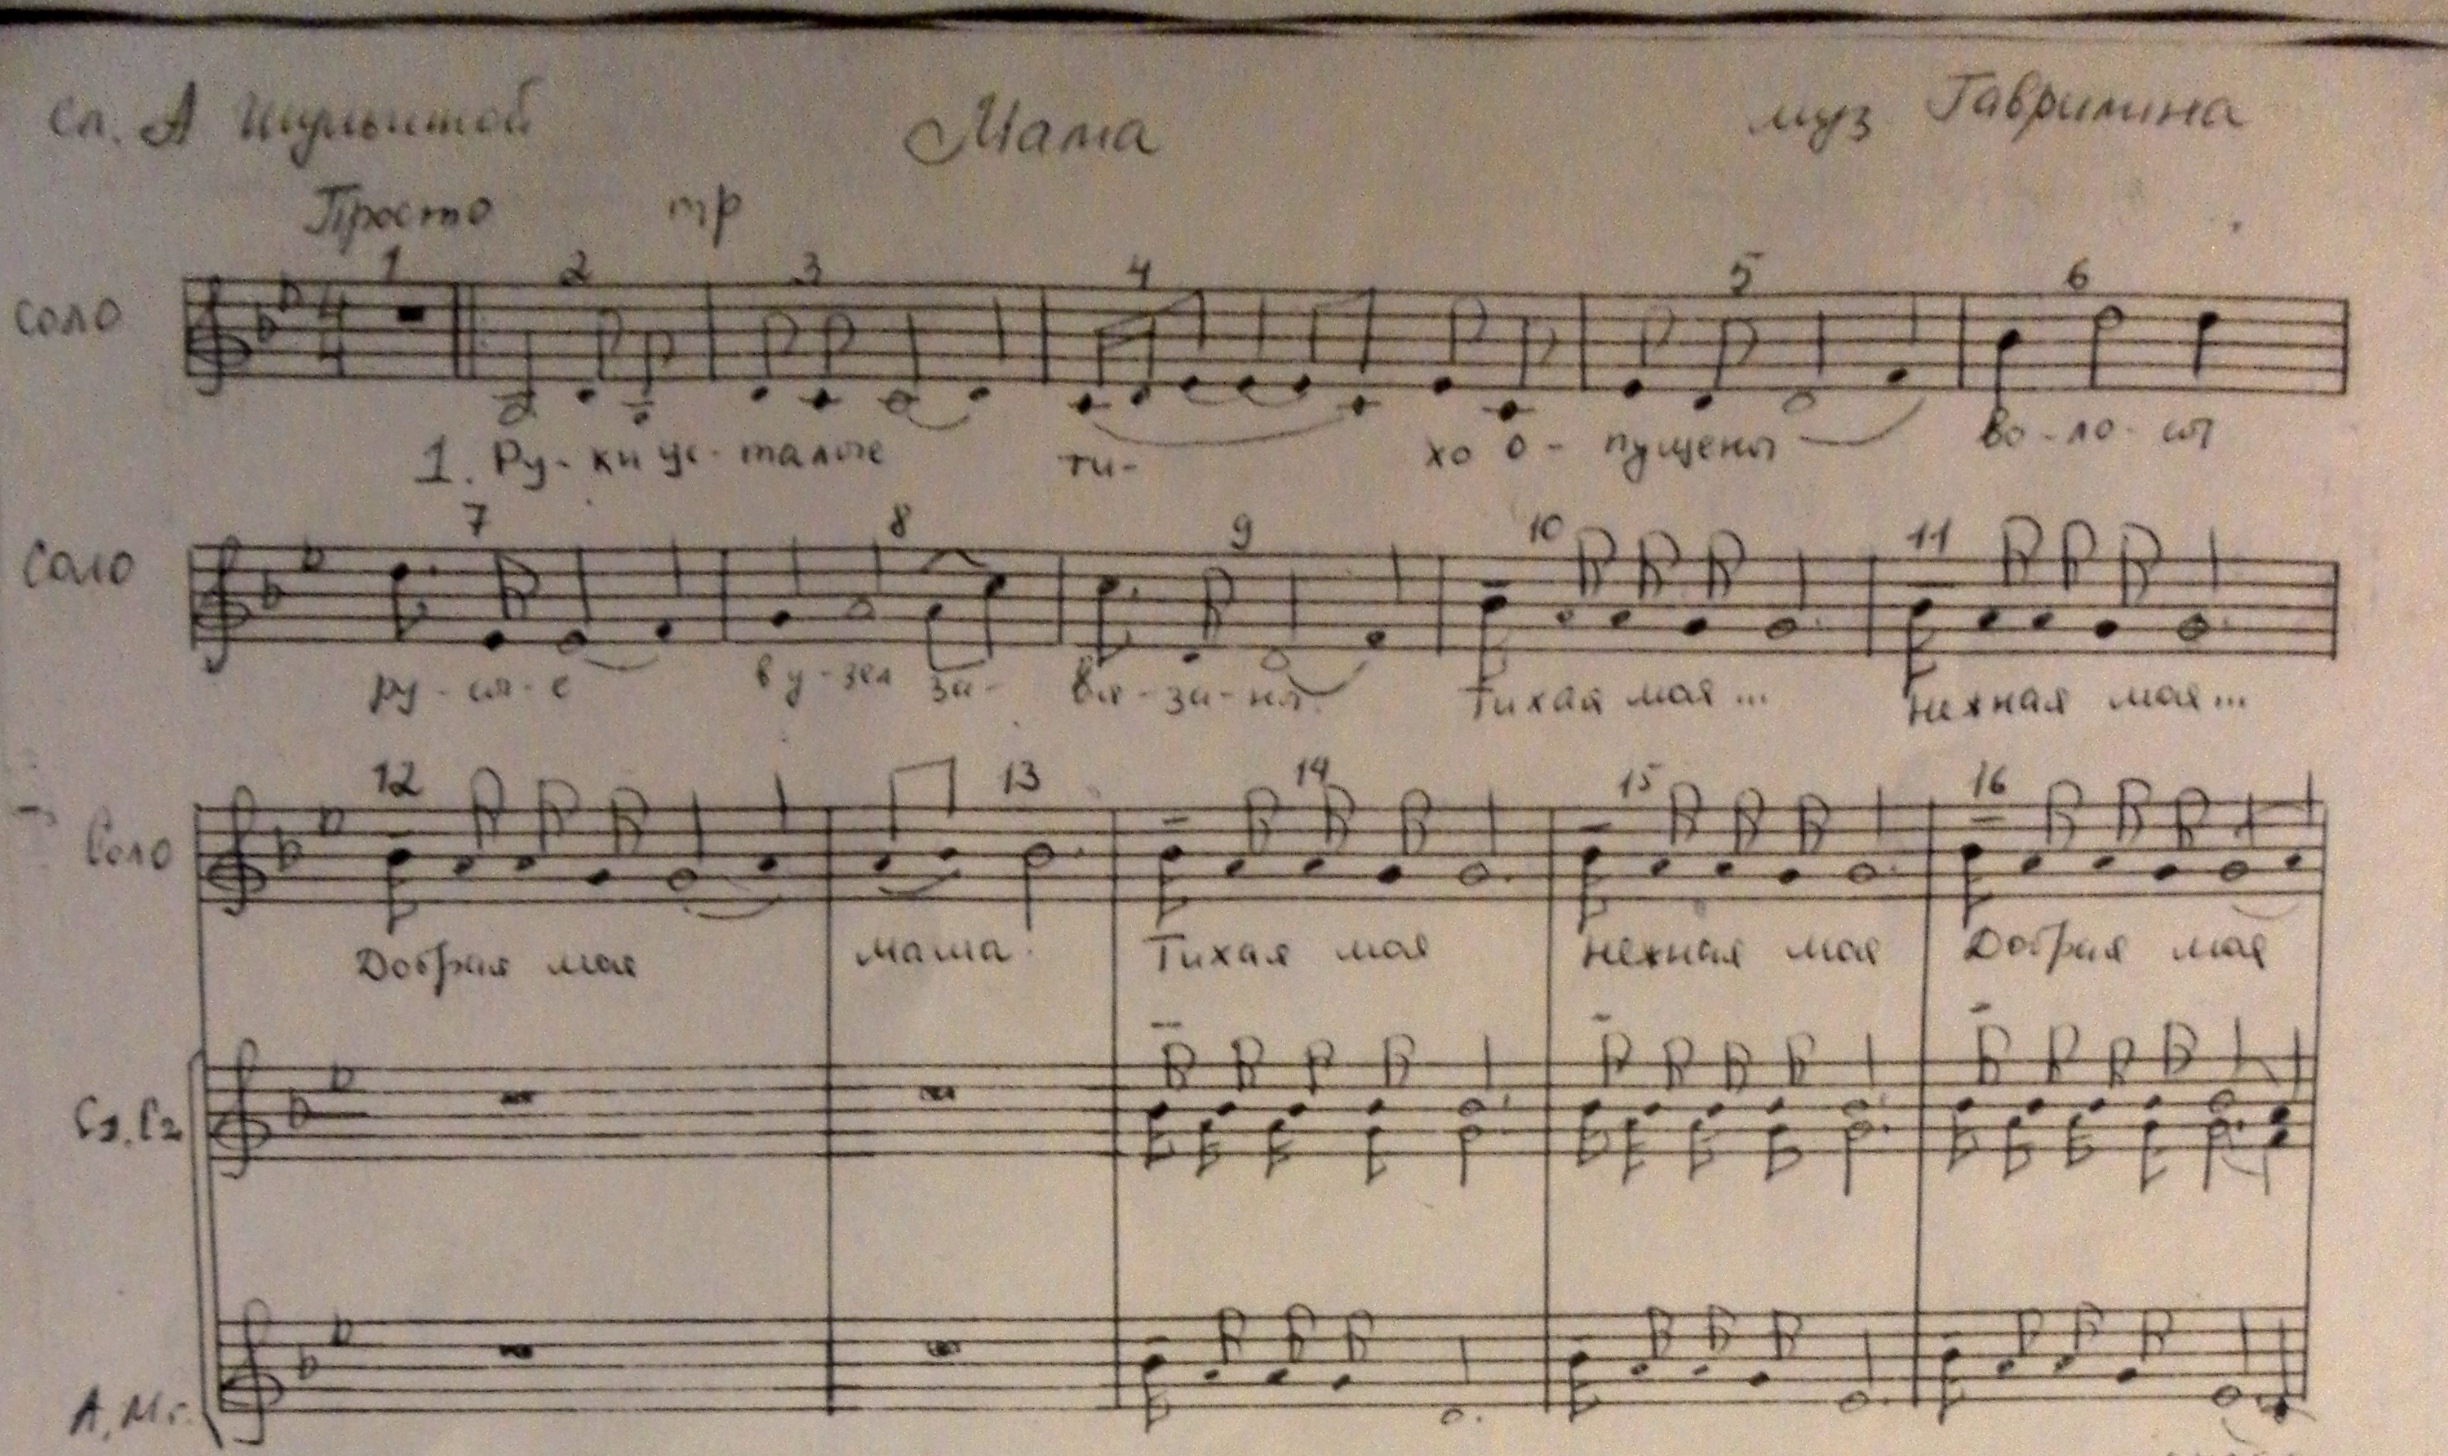 Сл. А Шульгиной Мама муз Гаврилина
Просто mp
1 2 3 4 5 6
Соло 4 4
1. Ру- ки ус- талые ти- хо о- пущены во-ло-сы
7 8 9 10 11
Соло
ру-сы-е в у-зел за- вя-за-ны. Тихая моя... Нежная моя...
12 13 14 15 16
Соло
Добрая моя мама. Тихая моя Нежная моя Добрая моя
С1, С2
А, М.г.